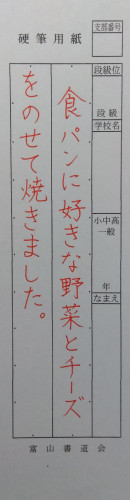 硬筆用紙
支部番号
段級位
段級
学校名
小中高
一般
年
なまえ
食パンに好きな野菜とチーズ
をのせて焼きました。
富山書道会